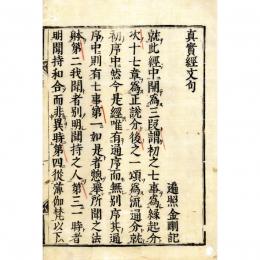 真實經文句
遍照金剛記
就此經中開為三段謂初之七事為緣起分
次十七章為正說分後之一頌為流通分就
初序中然今是經唯有通序而無別序其通
序中別有七事第一如是者惣舉所聞之法
躰第二我聞者別明聞持之人第三一時者
明聞持和合而非異時第四從薄伽梵以下